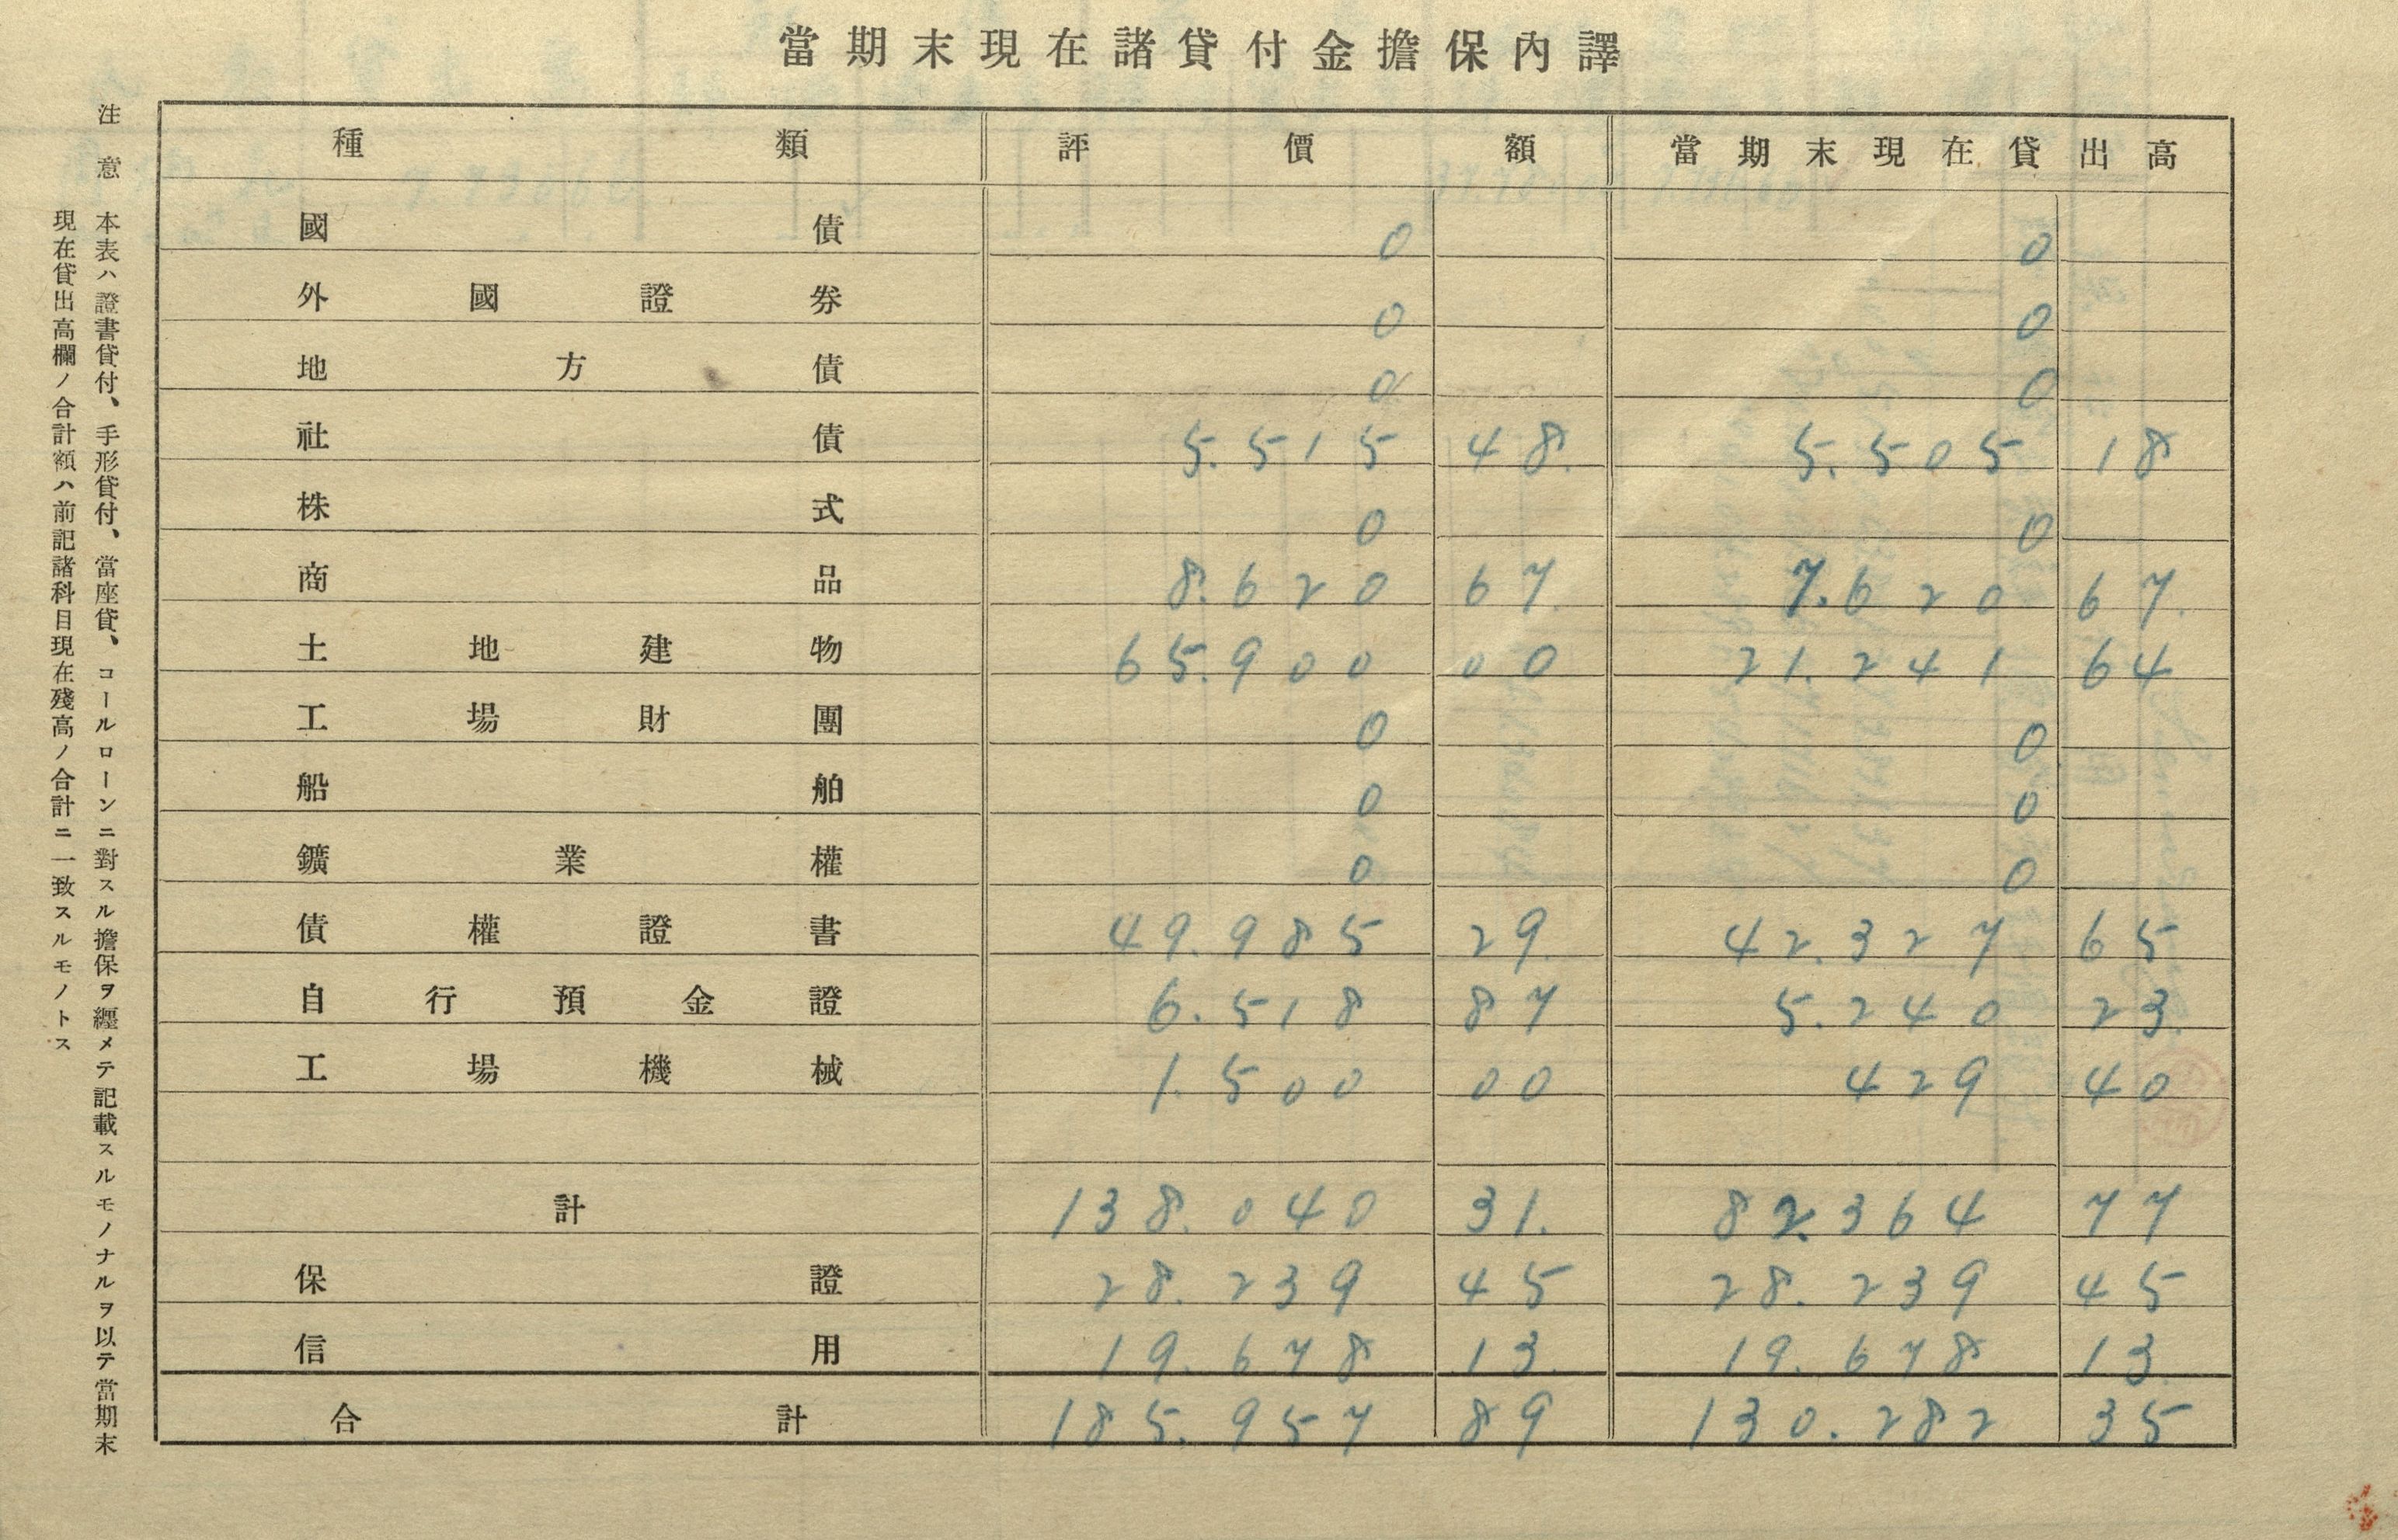 當期末現在諸貸付金擔保內譯
種類 評價額 當期末現在貸出高
國債 0 0
外國證券 0 0
地方債 0 0
社債 5.515 48. 5.505 18
株式 0 0
商品 8.620 67. 7.620 67.
土地建物 65.900 00 21.241 64
工場財團 0 0
船舶 0 0
鑛業權 0 0
債權證書 49.985 29. 42.327 65
自行預金證 6.518 87 5.240 23.
工場機械 1.500 00 429 40
計 138.040 31. 82.364 77
保證 28.239 45 28.239 45
信用 19.678 13. 19.678 13.
合計 185.957 89 130.282 35
注意 本表ハ證書貸付、手形貸付、當座貸、コールローンニ對スル擔保ヲ纒メテ記載スルモノナルヲ以テ當期末
現在貸出高欄ノ合計額ハ前記諸科目現在殘高ノ合計ニ一致スルモノトス